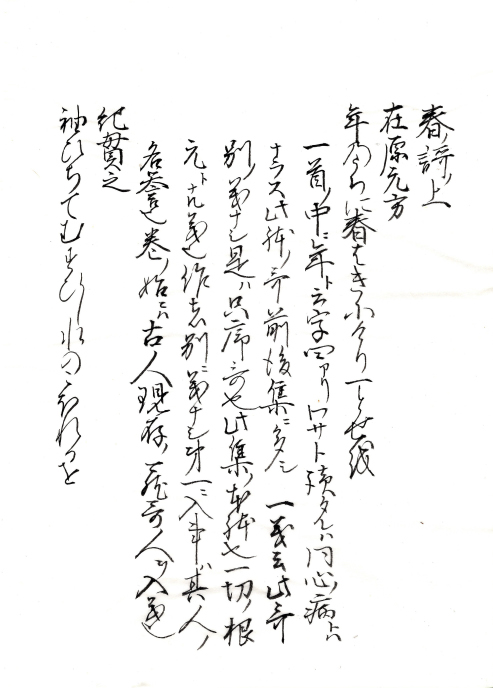 春謌ノ上
在原元方
年のうちに春はきにけり一とせを
一首ノ中ニ年ト云字四アリワサト讀タルハ同心病トハ
ナラス此躰ノ哥前後集ニ多シ 一義云此哥
別ノ義ナシ是ハ只序哥也此集ノ本躰也一切ノ根
元ト九義也作者別ニ義ナシ才一ニ入事其人ノ
名誉也巻ノ始ニハ古人現存ノ哥人ヲ入義也
紀貫之
袖ひちてむすひし水のこほれるを